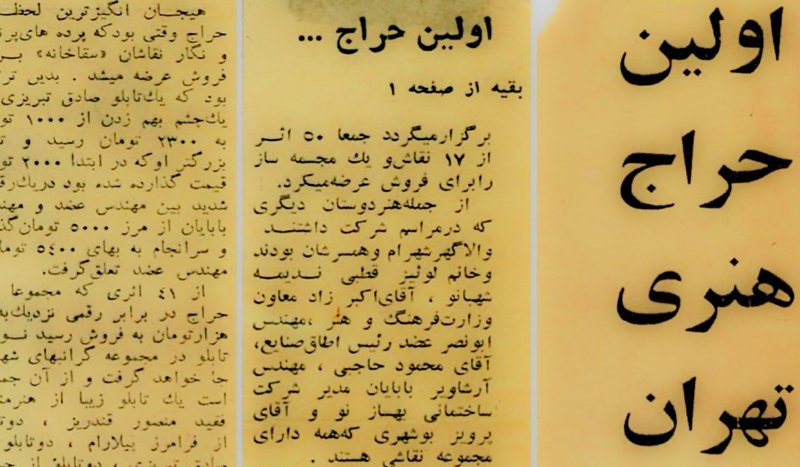 اولین
حراج
هنری
تهران
اولین حراج ...
بقیه از صفحه ۱
برگزارمیگردد جمعا ۵۰ اثر
از ۱۷ نقاش‌و یك مجسمه ساز
رابرای فروش عرضه‌میکرد.
از جمله‌هنردوستان دیگری
که درمراسم شرکت داشتنـد
والاگهرشهرام وهمسرشان بودند
وخانم لوئیز قطبی ندیمــه
شهبانو ، آقای‌اکبر زاد معاون
وزارت‌فرهنگ و هنر ،مهندس
ابونصر عضد رئیس اطاق‌صنایع،
آقای محمود حاجبی ، مهندس
آرشاویر بابایان مدیر شرکت
ساختمانی بهساز نو و آقای
پرویز بوشهری که‌همه دارای
مجموعه نقاشی هستند .
هیجــان انگیزترین
حراج وقتی بودکه پرده
و نگار نقاشان «سقاخانه»
فروش عرضه میشد . بدین
بود که یك‌تابلو صادق تبریزی
یك‌چشم بهم زدن از ۱۰۰۰
به ۲۳۰۰ تومان رسید و
بزرگتر اوکه در ابتدا ۲۰۰۰
قیمت گذارده شده بود
شدید بین مهندس عضد و
بابایان از مرز ۵۰۰۰
و سرانجام به بهای ۵٤۰۰
مهندس عضد تعلق‌گرفت.
از ٤۱ اثری که مجموعا
حراج در برابر رقمی
هزارتومان به فروش رسید
تابلو در مجموعه گرانبهای
جا خواهد گرفت و از آن
است یك تابلو زیبا از
فقید منصور قندریز ،
از فرامرز پیلارام ، دوتابلو
صادق تبریزی ، دوتابلو از